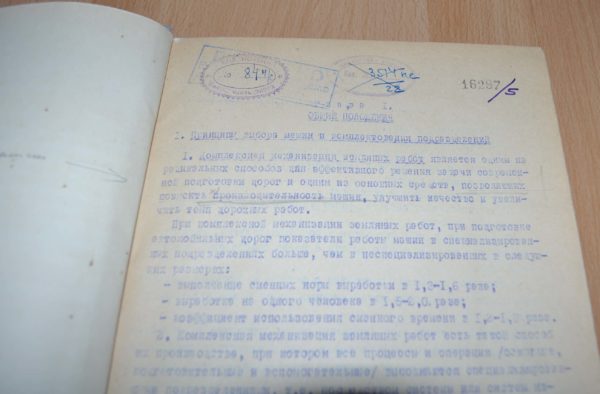 84
3514
28
16297/5
Глава I.
ОБЩИЕ ПОЛОЖЕНИЯ
I. Принципы выбора машин и комплектования подразделений
I. Комплексная механизация земляных работ является одним из
рациональных способов для эффективного решения задачи современ-
ной подготовки дорог и одним из основных средств, позволяющих
повысить производительность машин, улучшить качество и увели-
чить темп дорожных работ.
При комплексной механизации земляных работ, при подготовке
автомобильных дорог показатели работы машин в специализирован-
ных подразделениях больше, чем в неспециализированных в следую-
щих размерах:
- выполнение сменных норм выработки в 1,3-1,6 раза;
- выработка на одного человека в 1,5-2,0 раза;
- коэффициент использования сменного времени в раза.
2. Комплексная механизация земляных работ есть такой способ
их производства, при котором все процессы и операции /основные,
подготовительные и вспомогательные/ выполняются специализирован-